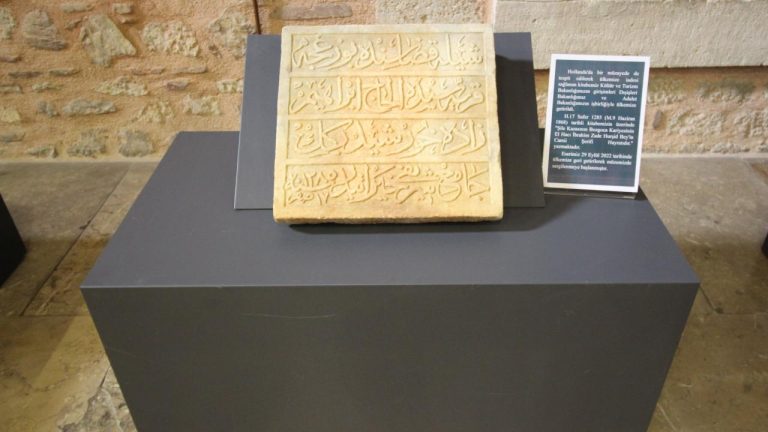 شيله قضاسنده
الحاج ابراهيم
زاده خورشيد بك
جامع شريف
Hollanda'da bir müzayede de
tespit edilerek ülkemize iadesi
sağlanan kitabemiz Kültür ve Turizm
Bakanlığımızın girişimleri Dışişleri
Bakanlığımız ve Adalet
Bakanlığımızın işbirliğiyle ülkemize
getirildi.
H.17 Safer 1285 (M.9 Haziran
1868) tarihli kitabemizin üzerinde
"Şile Kazasının Kariyesinin
El Hacı İbrahim Zade Hurşid Bey'in
Cami Şerifi Hayratıdır."
yazmaktadır.
Eserimiz 29 Eylül 2022 tarihinde
ülkemize geri getirilerek müzemizde
sergilenmeye başlanmıştır.